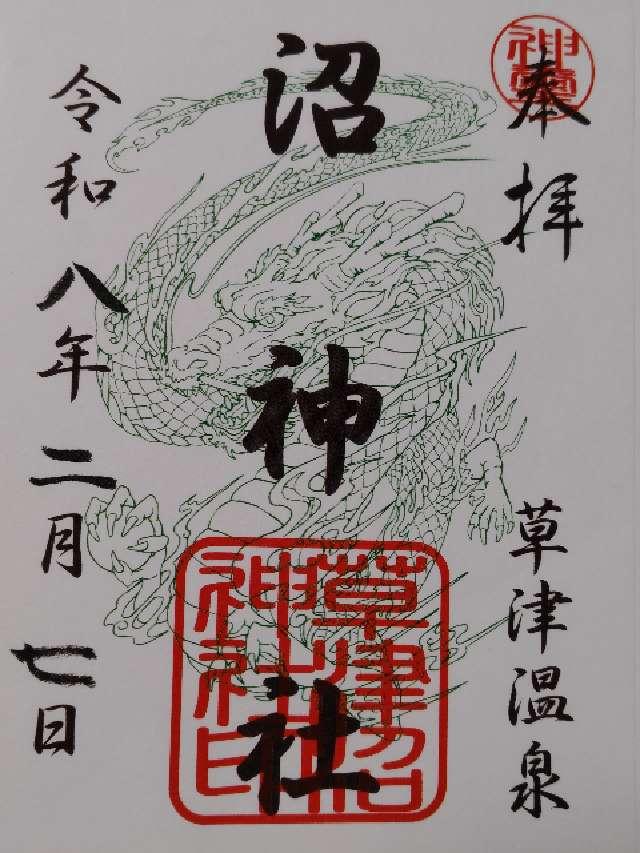 奉拝
草津温泉
沼神社
令和八年二月七日
草津沼
神社印